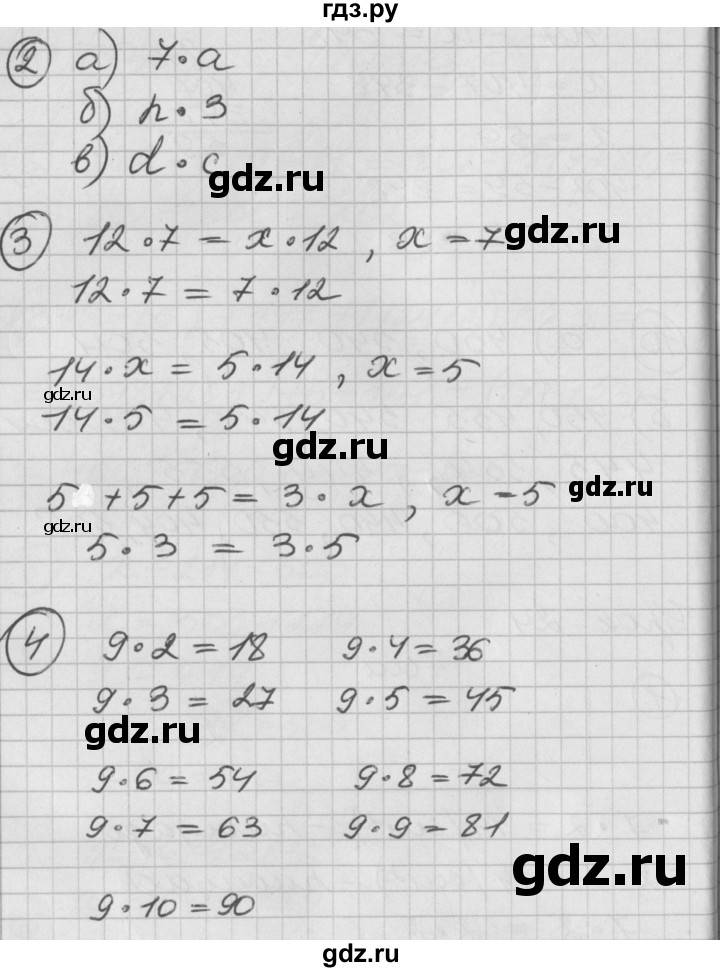 гдз.ру
2 а) 7·a
б) n·3
в) d·c
gdz.ru
3 12·7 = x·12 , x = 7
gdz.ru
12·7 = 7·12
14·x = 5·14 , x = 5
gdz.ru
14·5 = 5·14
gdz.ru
5 +5+5 = 3·x , x = 5
gdz.ru
gdz.ru
5·3 = 3·5
4 9·2 = 18 9·4 = 36
9·3 = 27 9·5 = 45
gdz.ru
9·6 = 54 9·8 = 72
9·7 = 63 9·9 = 81
gdz.ru
9·10 = 90
gdz.ru